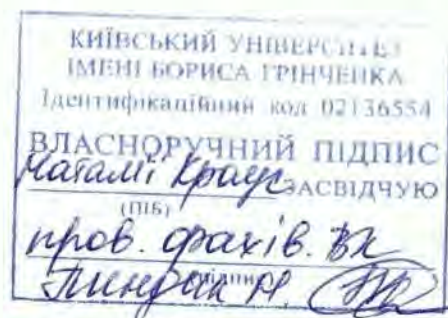 КИЇВСЬКИЙ УНІВЕРСИТЕТ
ІМЕНІ БОРИСА ГРІНЧЕНКА
Ідентифікаційний код 02136554
ВЛАСНОРУЧНИЙ ПІДПИС
Наталії Краус ЗАСВІДЧУЮ
(ПІБ)
пров. фахів. ВК